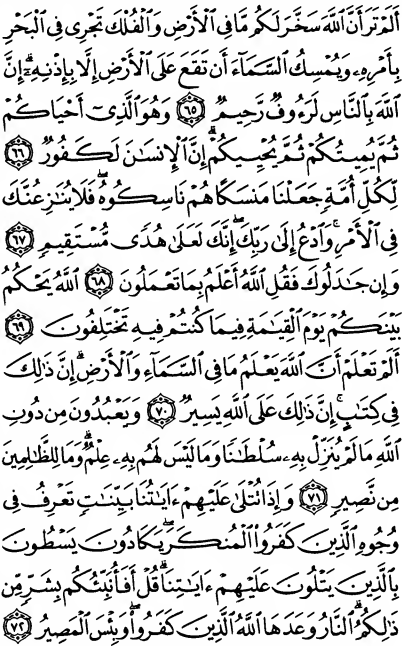 أَلَمْ تَرَ أَنَّ ٱللَّهَ سَخَّرَ لَكُم مَّا فِى ٱلْأَرْضِ وَٱلْفُلْكَ تَجْرِى فِى ٱلْبَحْرِ
بِأَمْرِهِۦ وَيُمْسِكُ ٱلسَّمَآءَ أَن تَقَعَ عَلَى ٱلْأَرْضِ إِلَّا بِإِذْنِهِۦٓ ۗ إِنَّ
ٱللَّهَ بِٱلنَّاسِ لَرَءُوفٌ رَّحِيمٌ ۝٦٥ وَهُوَ ٱلَّذِىٓ أَحْيَاكُمْ
ثُمَّ يُمِيتُكُمْ ثُمَّ يُحْيِيكُمْ ۗ إِنَّ ٱلْإِنسَٰنَ لَكَفُورٌ ۝٦٦
لِّكُلِّ أُمَّةٍ جَعَلْنَا مَنسَكًا هُمْ نَاسِكُوهُ ۖ فَلَا يُنَٰزِعُنَّكَ
فِى ٱلْأَمْرِ ۚ وَٱدْعُ إِلَىٰ رَبِّكَ ۖ إِنَّكَ لَعَلَىٰ هُدًى مُّسْتَقِيمٍ ۝٦٧
وَإِن جَٰدَلُوكَ فَقُلِ ٱللَّهُ أَعْلَمُ بِمَا تَعْمَلُونَ ۝٦٨ ٱللَّهُ يَحْكُمُ
بَيْنَكُمْ يَوْمَ ٱلْقِيَٰمَةِ فِيمَا كُنتُمْ فِيهِ تَخْتَلِفُونَ ۝٦٩
أَلَمْ تَعْلَمْ أَنَّ ٱللَّهَ يَعْلَمُ مَا فِى ٱلسَّمَآءِ وَٱلْأَرْضِ ۗ إِنَّ ذَٰلِكَ
فِى كِتَٰبٍ ۚ إِنَّ ذَٰلِكَ عَلَى ٱللَّهِ يَسِيرٌ ۝٧٠ وَيَعْبُدُونَ مِن دُونِ
ٱللَّهِ مَا لَمْ يُنَزِّلْ بِهِۦ سُلْطَٰنًا وَمَا لَيْسَ لَهُم بِهِۦ عِلْمٌ ۗ وَمَا لِلظَّٰلِمِينَ
مِن نَّصِيرٍ ۝٧١ وَإِذَا تُتْلَىٰ عَلَيْهِمْ ءَايَٰتُنَا بَيِّنَٰتٍ تَعْرِفُ فِى
وُجُوهِ ٱلَّذِينَ كَفَرُوا۟ ٱلْمُنكَرَ ۖ يَكَادُونَ يَسْطُونَ
بِٱلَّذِينَ يَتْلُونَ عَلَيْهِمْ ءَايَٰتِنَا ۗ قُلْ أَفَأُنَبِّئُكُم بِشَرٍّ مِّن
ذَٰلِكُمُ ۗ ٱلنَّارُ وَعَدَهَا ٱللَّهُ ٱلَّذِينَ كَفَرُوا۟ ۖ وَبِئْسَ ٱلْمَصِيرُ ۝٧٢